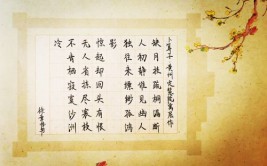 卜算子 黄州定慧院寓居作
缺月挂疏桐漏断
人初静谁见幽人
独往来缥缈孤鸿
影
惊起却回头有恨
无人省拣尽寒枝
不肯栖寂寞沙洲
冷